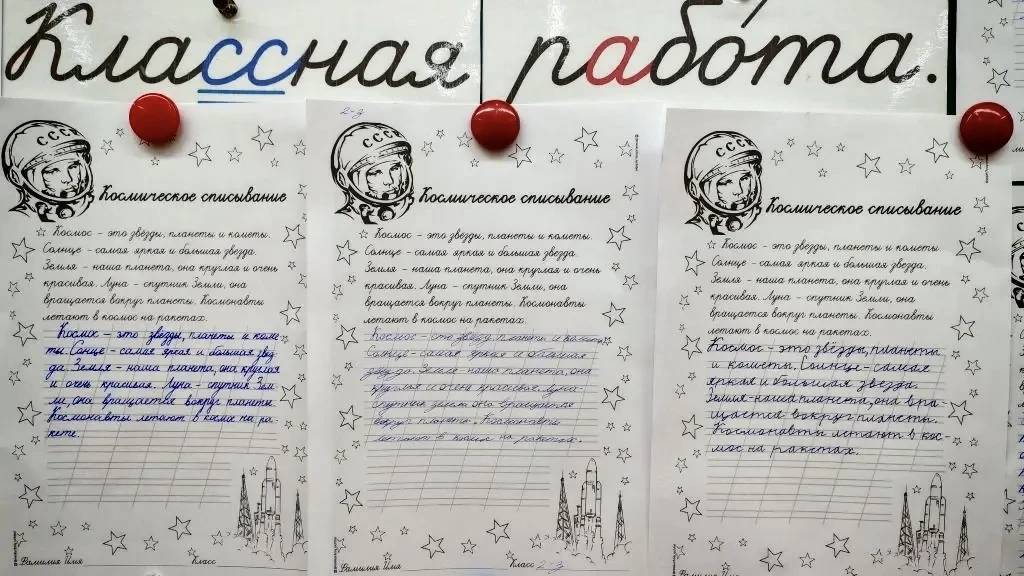 Классная работа.
2-д
СССР
Космическое списывание
Космос - это звёзды, планеты и кометы.
Солнце - самая яркая и большая звезда.
Земля - наша планета, она круглая и очень
красивая. Луна - спутник Земли, она
вращается вокруг планеты. Космонавты
летают в космос на ракетах.
Космос - это звезды, планеты и коме-
ты. Солнце - самая яркая и большая звез-
да. Земля - наша планета, она круглая
и очень красивая. Луна - спутник Зем-
ли, она вращается вокруг планеты.
Космонавты летают в космос на ра-
кете.
Фамилия Имя
Класс
СССР
Космическое списывание
Космос - это звёзды, планеты и кометы.
Солнце - самая яркая и большая звезда.
Земля - наша планета, она круглая и очень
красивая. Луна - спутник Земли, она
вращается вокруг планеты. Космонавты
летают в космос на ракетах.
Космос - это звёзды, планеты и
Солнце - самая яркая и большая
звезда. Земля - наша планета, она
круглая и очень красивая. Луна -
спутник земли она вращается
вокруг планеты. Космонавты
летают в космос на ракетах.
Фамилия Имя
Класс 2-д
СССР
Космическое списывание
Космос - это звёзды, планеты и кометы.
Солнце - самая яркая и большая звезда.
Земля - наша планета, она круглая и очень
красивая. Луна - спутник Земли, она
вращается вокруг планеты. Космонавты
летают в космос на ракетах.
Космос - это звёзды, планеты
и кометы. Солнце - самая
яркая и большая звезда.
Земля - наша планета, она вра-
щается вокруг планеты.
Космонавты летают в кос-
мос на ракетах.